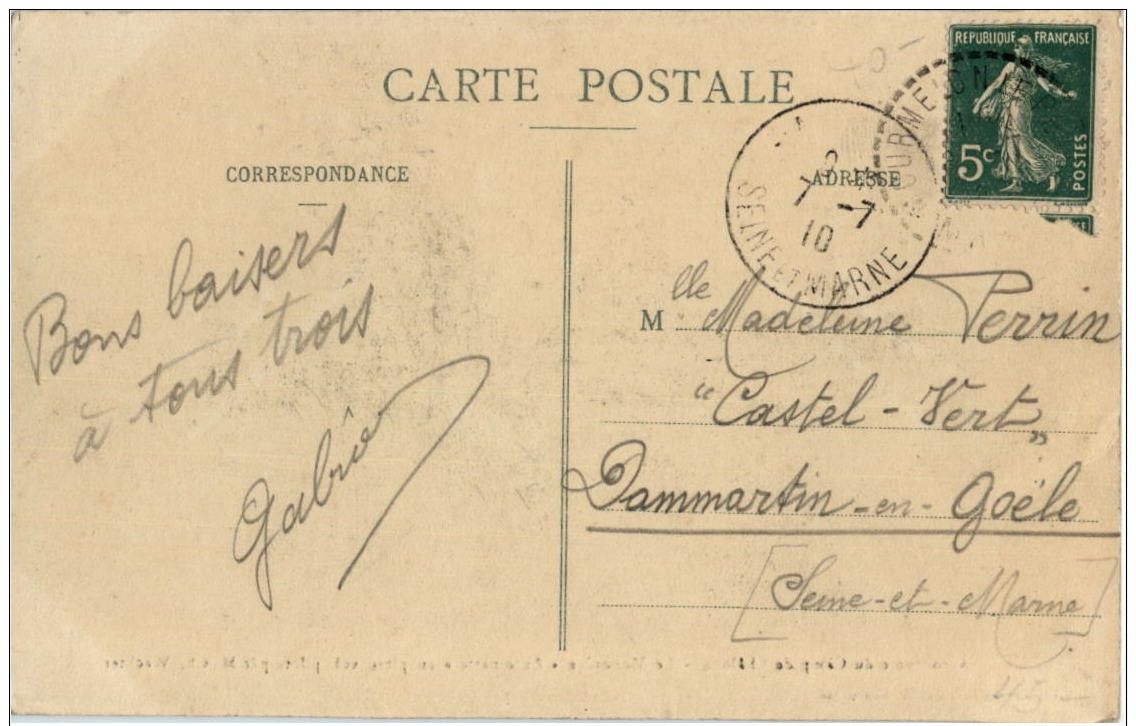 CARTE POSTALE
REPUBLIQUE FRANÇAISE
5c
POSTES
CORRESPONDANCE
ADRESSE
7 -7
10
SEINE ET MARNE
Bons baisers
à tous trois
M lle Madeleine Perrin
"Castel-Vert"
Dammartin-en-Goële
[Seine-et-Marne]